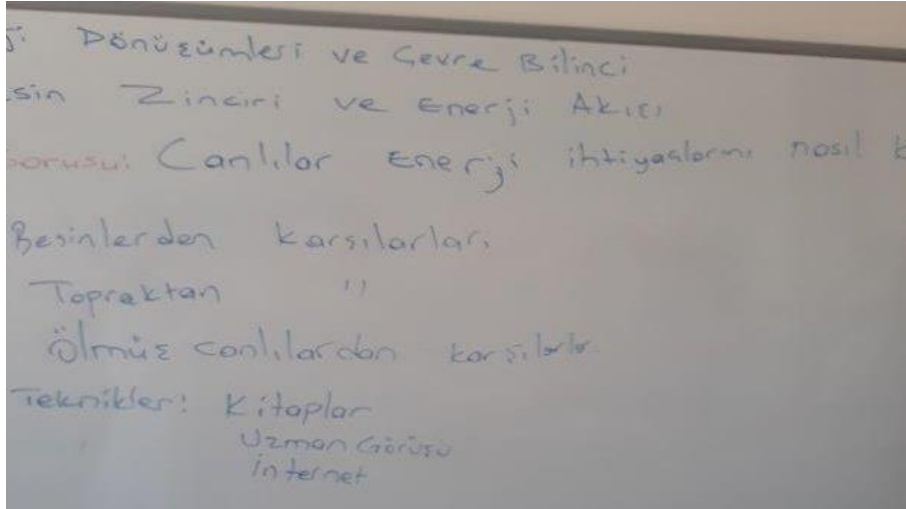 Dönüşümleri ve Çevre Bilinci
Zinciri ve Enerji Akışı
sorusu: Canlılar Enerji ihtiyaçlarını nasıl
Besinlerden karşılarlar.
Topraktan "
Ölmüş canlılardan karşılarlar
Teknikler: Kitaplar
Uzman Görüşü
İnternet